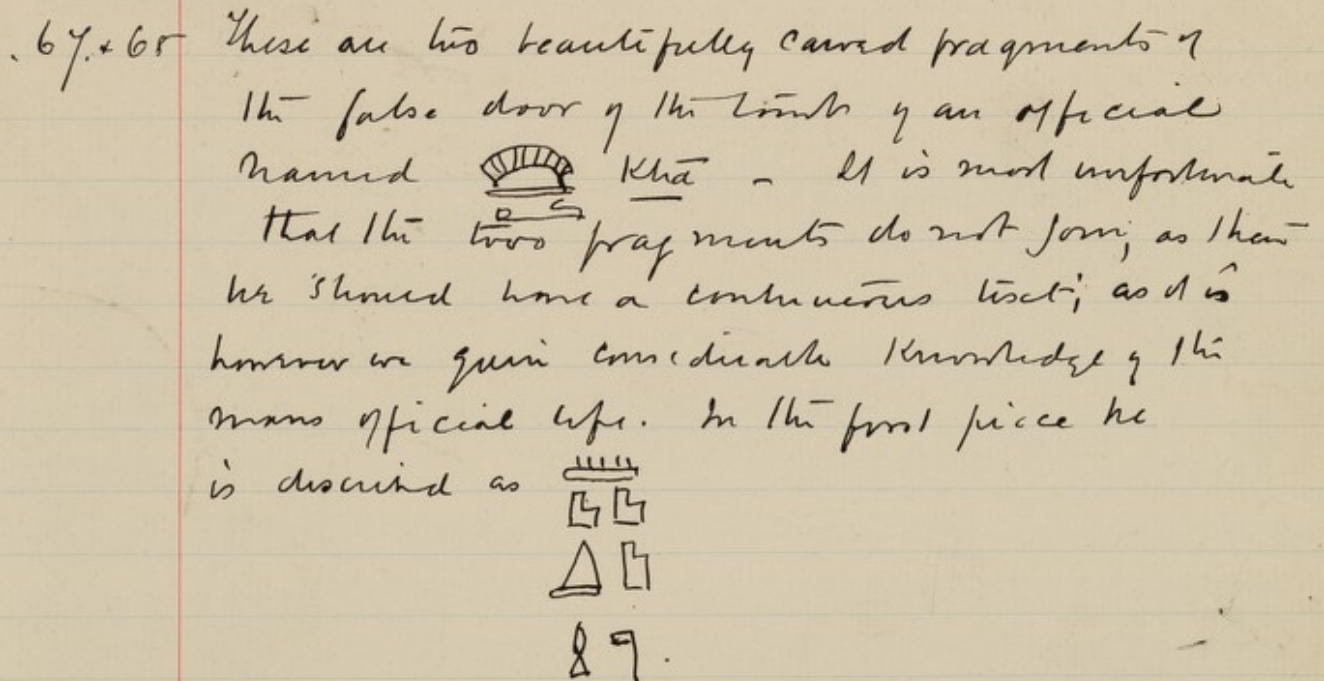 .67.+68 These are two beautifully carved fragments of
the false door of the tomb of an official
named 𓈍𓂝 Khā – It is most unfortunate
that the two fragments do not join, as then
we should have a continuous text; as it is
however we gain considerable knowledge of the
mans official life. In the first piece he
is described as 𓏠
𓊨𓊨
𓉴𓊨
𓍛𓊹.